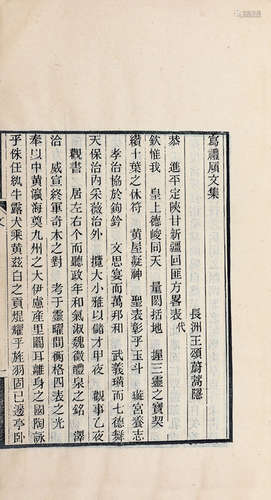 寫禮廎文集
長洲王頌蔚蒿隱
恭進平定陝甘新疆回匪方畧表代
欽惟我皇上德峻同天量閎括地握三靈之寶契
續十葉之休符黃屋凝神聖表彰乎玉斗璇宮養志
孝治協於鉤鈐文思宴而萬邦和武義璜而七德舞
天保治內采薇治外攬大小雅以儲才甲夜觀事乙夜
觀書居左右个而聽政年和氣淑魏徵醴泉之銘澤
洽威宣終軍奇木之對考于靈曜間衡格四表之光
奉以中黃瀛海奠九州之大伊盧產里闟耳離身之國陶詠
乎侏任紈牛露犬乘黃茲白之貢焜耀乎旄羽固已邊亭臥
文
一